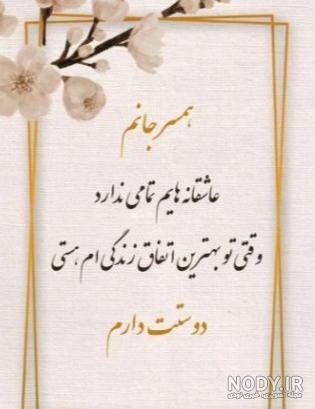 همسر جانم
عاشقانه هایم تمامی ندارد
وقتی تو بهترین اتفاق زندگی ام هستی
دوستت دارم
NODY.IR
مجله تصویری، خبری نودی